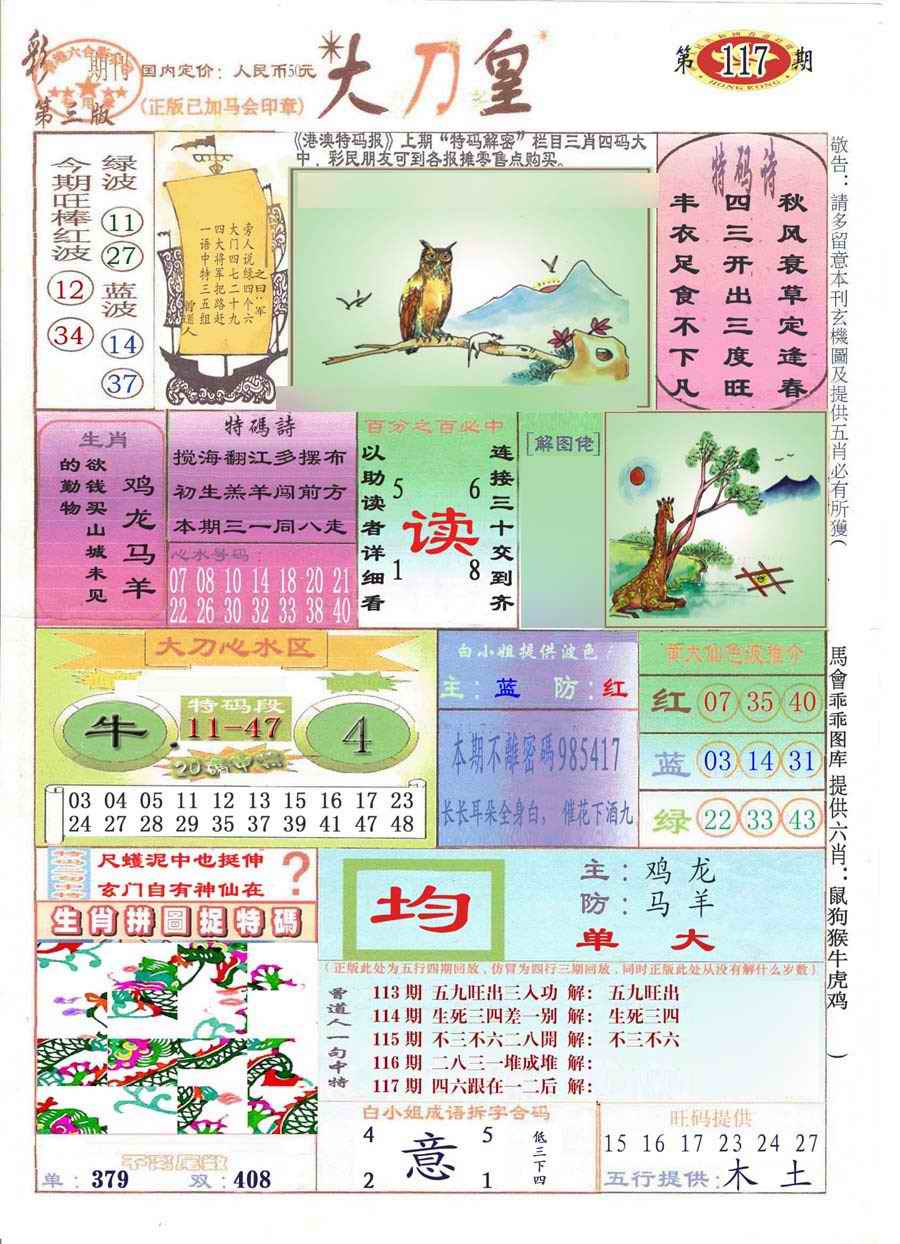 彩
期刊
第三版
国内定价：人民币50元
(正版已加马会印章)
大刀皇
第117期
HONG KONG
敬告：請多留意本刊玄機圖及提供五肖必有所獲(
馬會乖乖图库 提供六肖：鼠狗猴牛虎鸡 )
绿波 11 27 蓝波 14 37
今期旺棒红波 12 34
旁人说绿四个六
大门四七二十九
四大将军把路赶
一语中特三五组
之曰："军
曾道人
《港澳特码报》上期"特码解密"栏目三肖四码大
中，彩民朋友可到各报摊零售点购买。
特码诗
秋风衰草定逢春
四三开出三度旺
丰衣足食不下凡
生肖
鸡龙马羊
欲钱买山城未见
的勤物
特碼詩
搅海翻江多摆布
初生羔羊闯前方
本期三一同八走
心水号码：
07 08 10 14 18 20 21
22 26 30 32 33 38 40
百分之百必中
连接三十交到齐
以助读者详细看
5 6
读
1 8
[解图佬]
大刀心水区
牛
特码段
11-47
4
20碼中特
03 04 05 11 12 13 15 16 17 23
24 27 28 29 35 37 39 41 47 48
白小姐提供波色
主：蓝 防：红
本期不離密碼985417
长长耳朵全身白，催花下酒九
黄大仙色波推介
红 07 35 40
蓝 03 14 31
绿 22 33 43
尺蠖泥中也挺伸
玄门自有神仙在
?
生肖拼圖捉特碼
均
主：鸡龙
防：马羊
单大
(正版此处为五行四期回放、仿冒为四行三期回放，同时正版此处从没有解什么岁数)
曾道人一句中特
113期 五九旺出三入功 解：五九旺出
114期 生死三四差一别 解：生死三四
115期 不三不六二八開 解：不三不六
116期 二八三一堆成堆 解：
117期 四六跟在一二后 解：
单：379 双：408
白小姐成语拆字合码
4 5
意
2 1
低三下四
旺码提供
15 16 17 23 24 27
五行提供：木 土